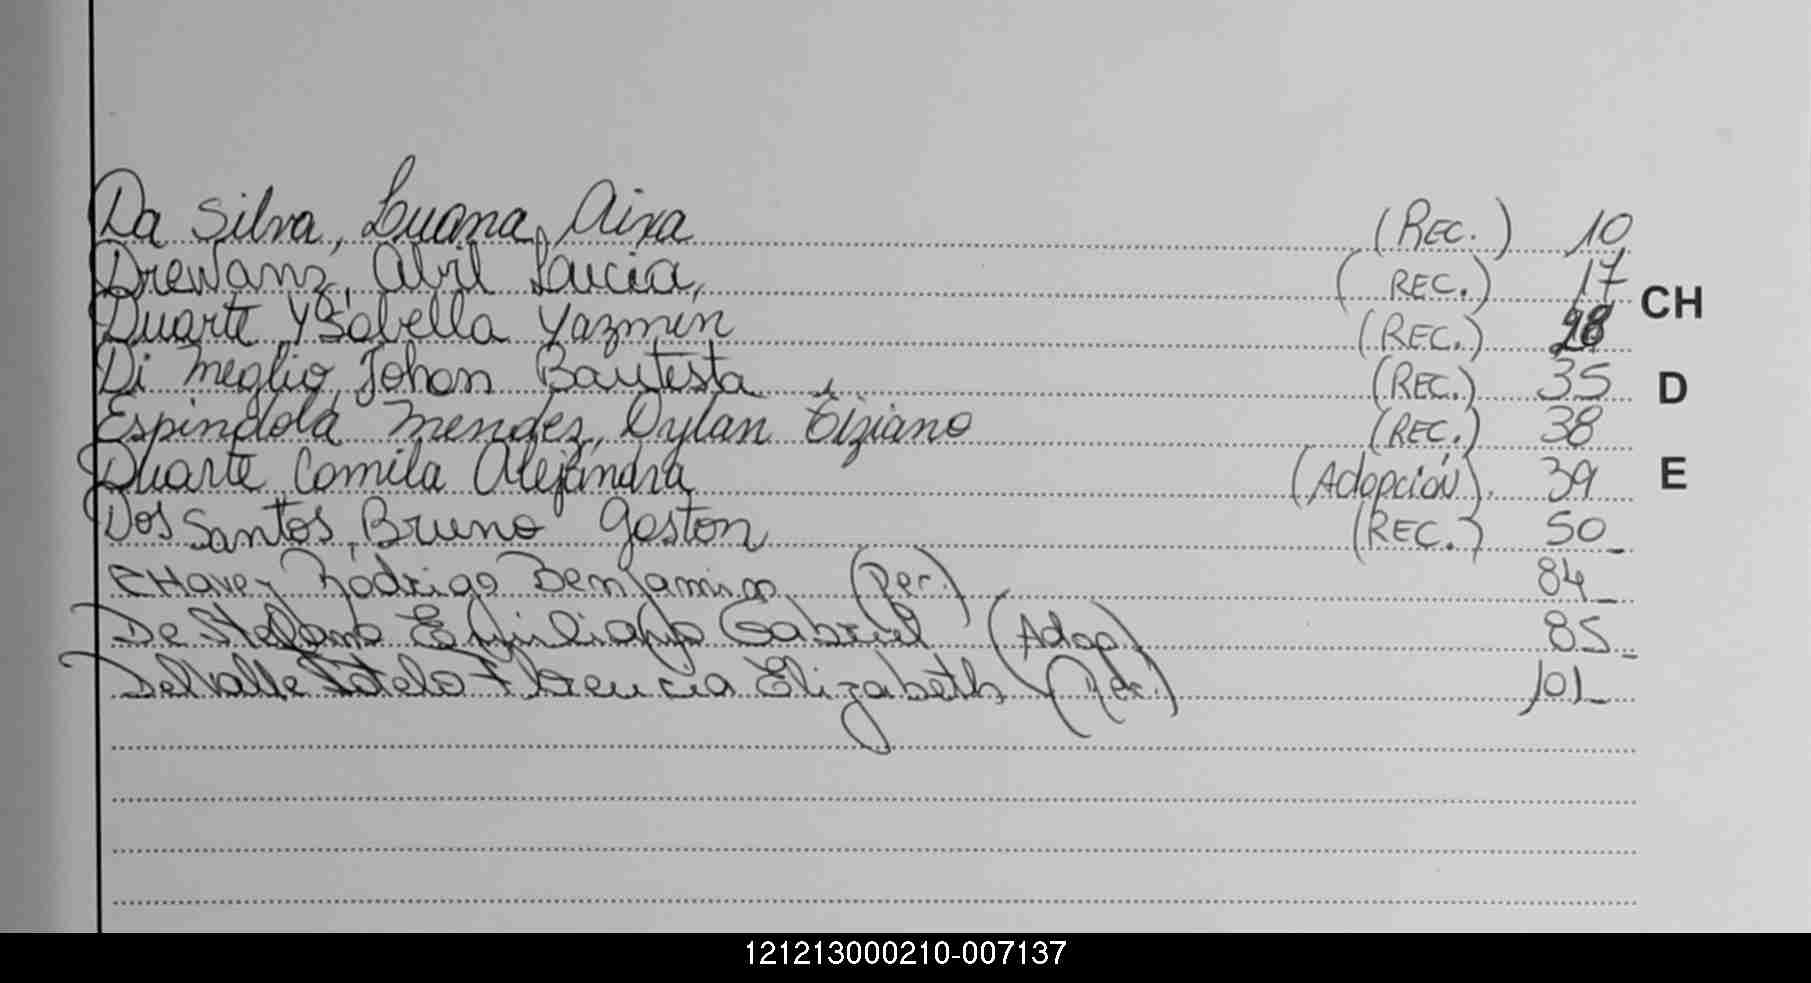 Da Silva, Luana Aixa (REC.) 10
Drewanz, Abril Lucia, (REC.) 17
CH
Duarte Ysabella Yazmin (REC.) 28
Di Meglio, Johan Bautista (REC.) 35
D
Espindola Mendez, Dylan Tiziano (REC.) 38
Duarte Camila Alejandra (Adopción). 39
E
Dos Santos, Bruno Gaston (REC.) 50_
CHavez Rodrigo Benjamin (Rec.) 84_
De Stefano Emiliano Gabriel (Adop) 85_
Delvalle Sotelo Florencia Elizabeth (Rec.) 101_
121213000210-007137